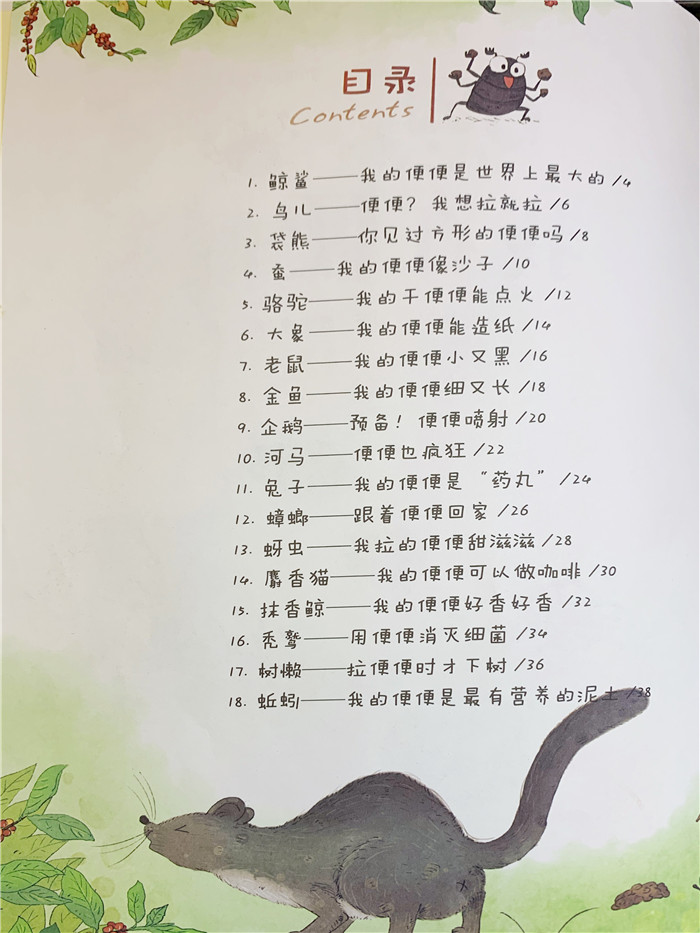 目录
Contents
1. 鲸鲨——我的便便是世界上最大的 /4
2. 鸟儿——便便？我想拉就拉 /6
3. 袋熊——你见过方形的便便吗 /8
4. 蚕——我的便便像沙子 /10
5. 骆驼——我的干便便能点火 /12
6. 大象——我的便便能造纸 /14
7. 老鼠——我的便便小又黑 /16
8. 金鱼——我的便便细又长 /18
9. 企鹅——预备！便便喷射 /20
10. 河马——便便也疯狂 /22
11. 兔子——我的便便是“药丸” /24
12. 蟑螂——跟着便便回家 /26
13. 蚜虫——我拉的便便甜滋滋 /28
14. 麝香猫——我的便便可以做咖啡 /30
15. 抹香鲸——我的便便好香好香 /32
16. 秃鹫——用便便消灭细菌 /34
17. 树懒——拉便便时才下树 /36
18. 蚯蚓——我的便便是最有营养的泥土 /38